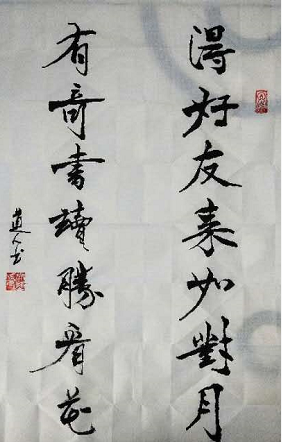 得好友来如對月
有奇書讀勝看花
道人書